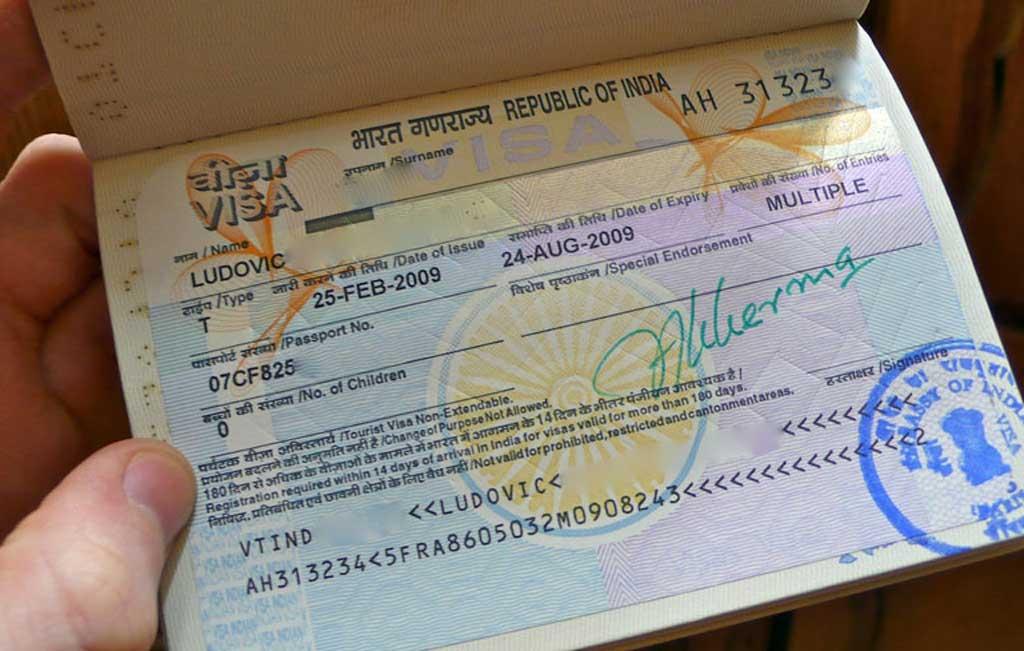 भारत गणराज्य REPUBLIC OF INDIA
AH 31323
वीज़ा
VISA
VISA
उपनाम /Surname
नाम / Name
LUDOVIC
टाईप /Type
T
जारी करने की तिथि /Date of Issue
25-FEB-2009
समाप्ति की तिथि /Date of Expiry
24-AUG-2009
प्रवेशों की संख्या /No. of Entries
MULTIPLE
पासपोर्ट संख्या /Passport No.
07CF825
विशेष पृष्ठाकंन /Special Endorsement
बच्चों की संख्या /No. of Children
0
हस्ताक्षर /Signature
पर्यटक वीज़ा अविस्तार्य /Tourist Visa Non-Extendable.
प्रयोजन बदलने की अनुमति नहीं है /Change of Purpose Not Allowed.
180 दिन से अधिक के वीज़ाओं के मामले में भारत में आगमन के 14 दिन के भीतर पंजीयन आवश्यक है /
Registration required within 14 days of arrival in India for visas valid for more than 180 days.
निषिद्ध, प्रतिबंधित एवं छावनी क्षेत्रों के लिए वैध नहीं /Not valid for prohibited, restricted and cantonment areas.
VTIND <<LUDOVIC< <<<<<<<<<
AH313234<5FRA8605032M0908243<<<<<<<<<<<<<<<2
OF INDIA
VISA